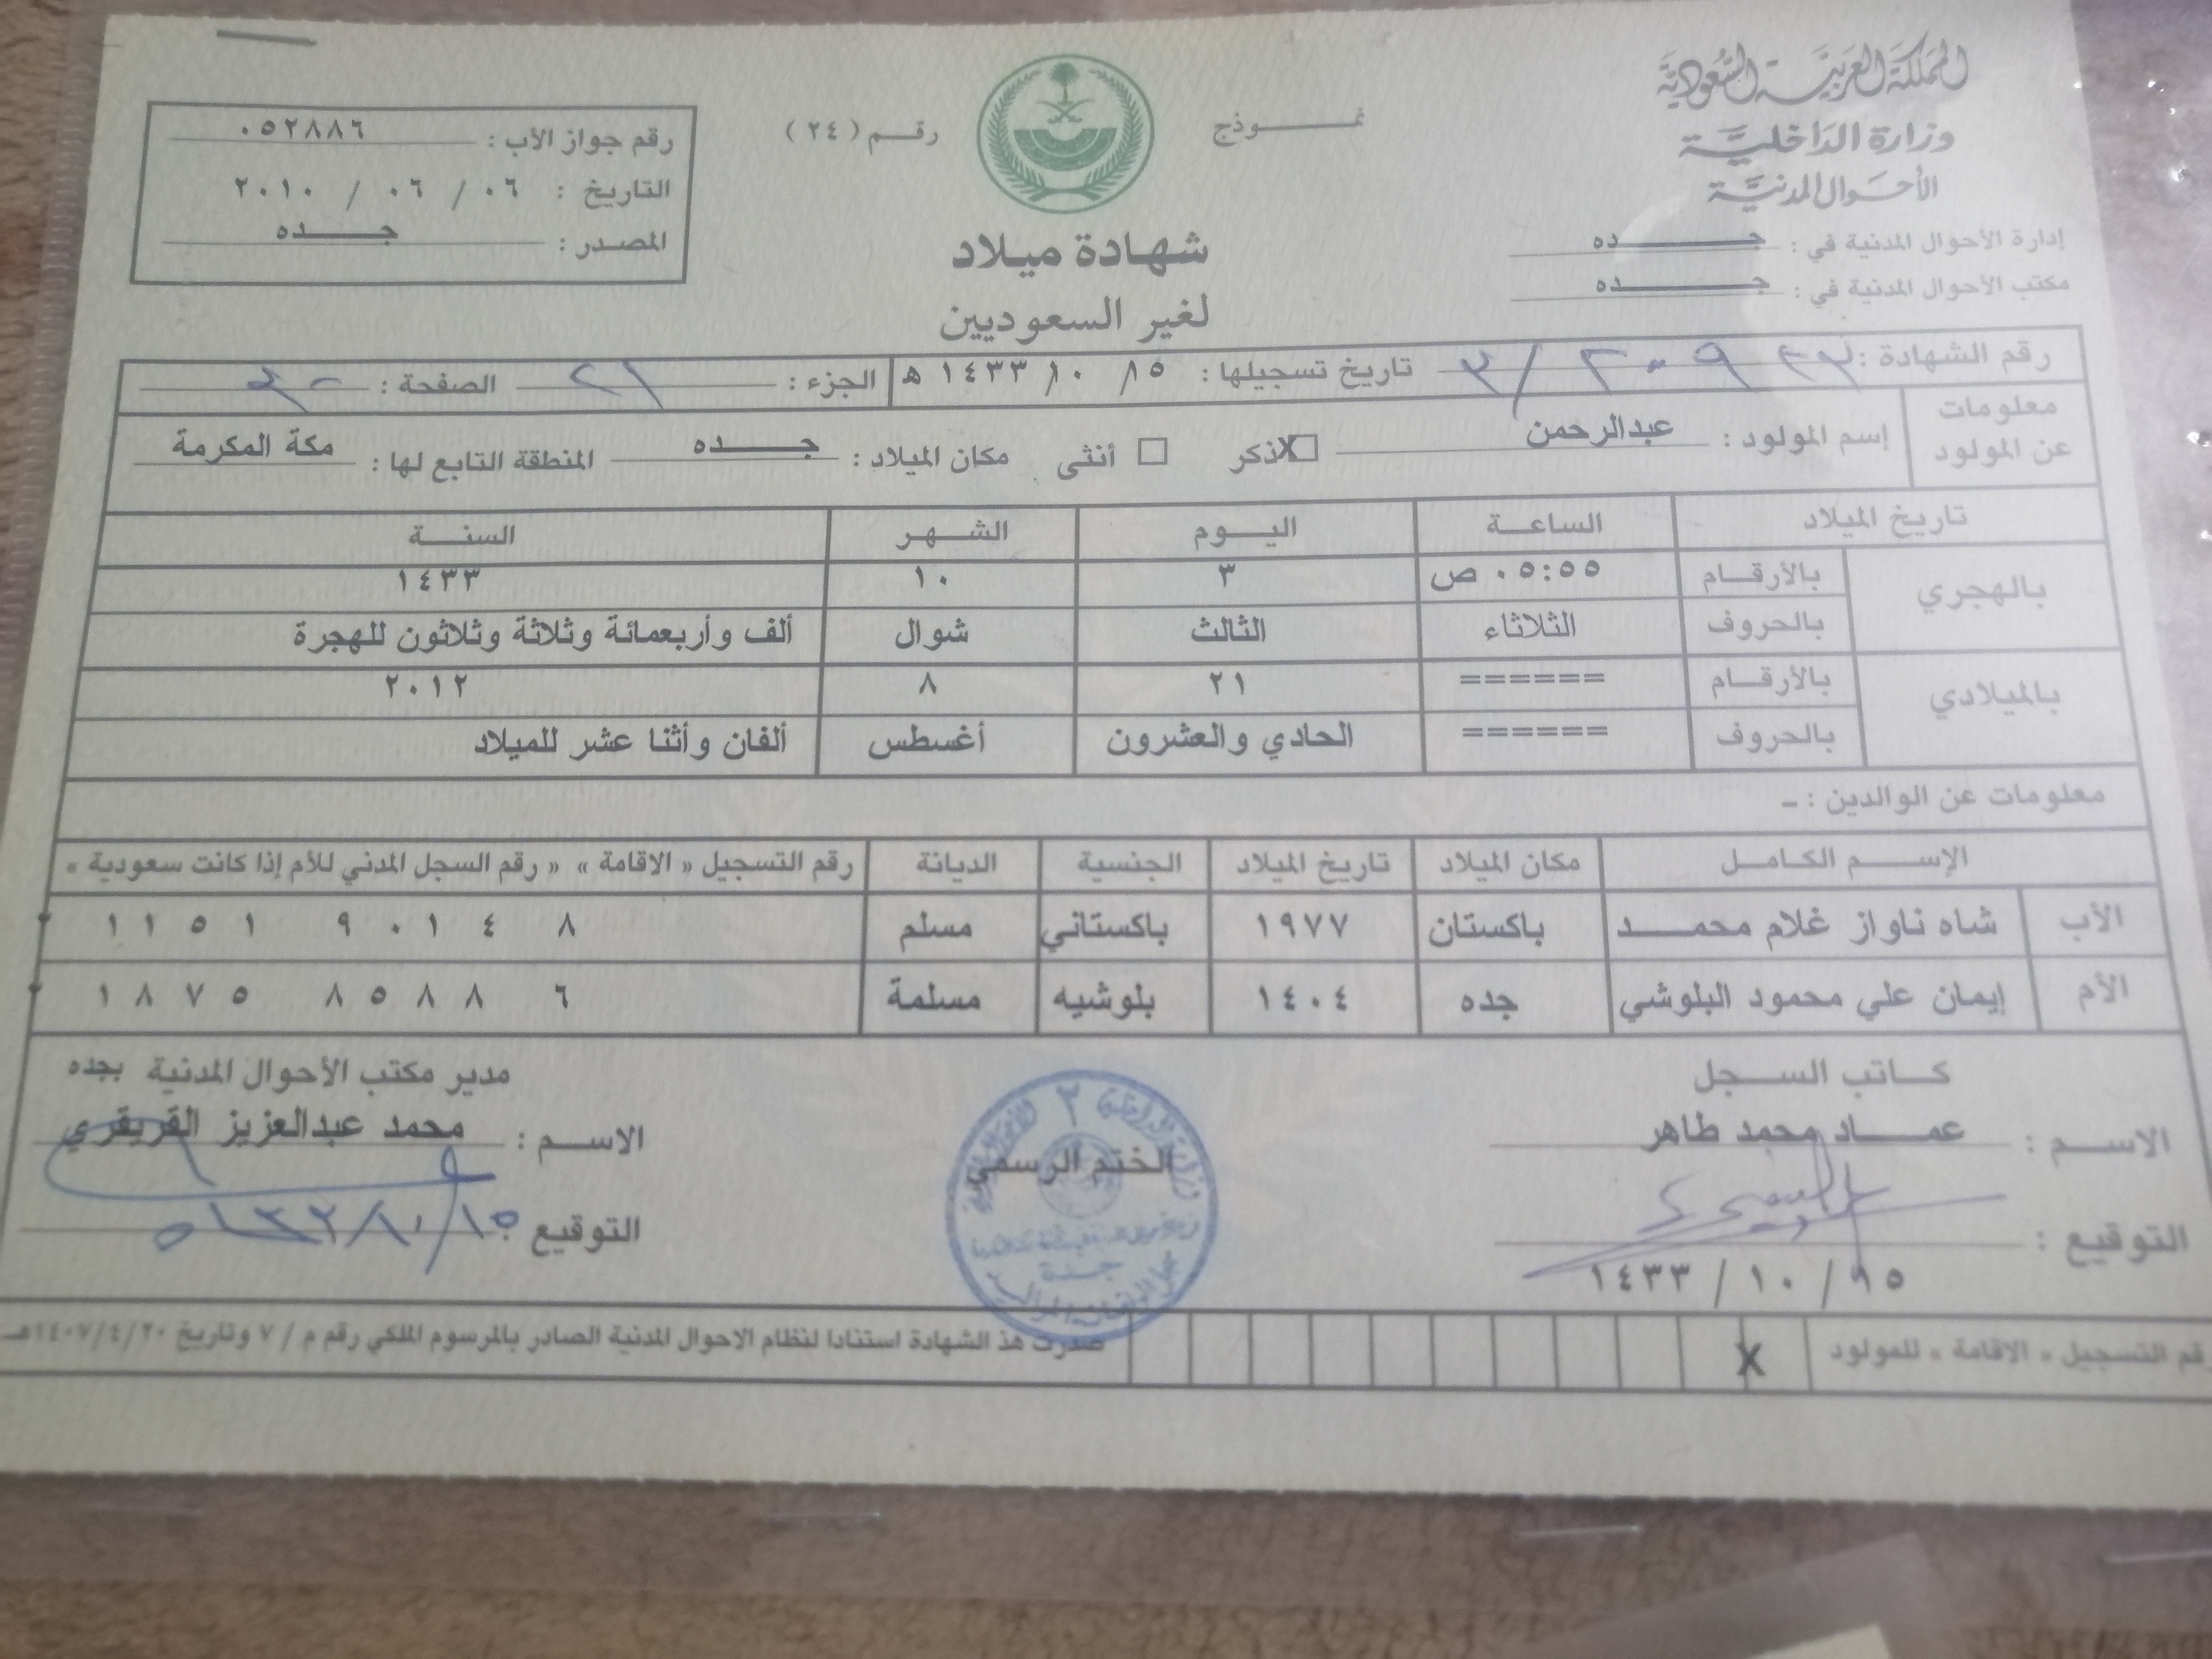 المملكة العربية السعودية
وزارة الداخلية
الأحوال المدنية
إدارة الأحوال المدنية في : جـــده
مكتب الأحوال المدنية في : جـــده
نمـــوذج رقــم ( ٢٤ )
شهادة ميلاد
لغير السعوديين
رقم جواز الأب : ٠٥٢٨٨٦
التاريخ : ٠٦ / ٠٦ / ٢٠١٠
المصدر : جـــده
رقم الشهادة : تاريخ تسجيلها : ١٥ / ١٠ / ١٤٣٣ هـ الجزء : ٢١ الصفحة :
معلومات عن المولود إسم المولود : عبدالرحمن X ذكر □ أنثى مكان الميلاد : جـــده المنطقة التابع لها : مكة المكرمة
تاريخ الميلاد الساعــة اليــوم الشــهر السنــة
بالهجري بالأرقــام ٠٥:٥٥ ص ٣ ١٠ ١٤٣٣
بالحروف الثلاثاء الثالث شوال ألف وأربعمائة وثلاثة وثلاثون للهجرة
بالميلادي بالأرقــام ====== ٢١ ٨ ٢٠١٢
بالحروف ====== الحادي والعشرون أغسطس ألفان وأثنا عشر للميلاد
معلومات عن الوالدين : ـ
الإســـم الكـامــل مكان الميلاد تاريخ الميلاد الجنسية الديانة رقم التسجيل « الاقامة » « رقم السجل المدني للأم إذا كانت سعودية »
الأب شاه ناواز غلام محمـــد باكستان ١٩٧٧ باكستاني مسلم ١ ١ ٥ ١ ٩ ٠ ١ ٤ ٨
الأم إيمان علي محمود البلوشي جده ١٤٠٤ بلوشيه مسلمة ١ ٨ ٧ ٥ ٨ ٥ ٨ ٨ ٦
كـــاتب الســـجل
الاســـم : عمــاد محمد طاهر
التوقيع :
١٤٣٣ / ١٠ / ١٥
الختم الرسمي
جــدة
مدير مكتب الأحوال المدنية بجده
الاســـم : محمد عبدالعزيز القريقري
التوقيع
رقم التسجيل « الاقامة » للمولود X
صدرت هذ الشهادة استنادا لنظام الاحوال المدنية الصادر بالمرسوم الملكي رقم م / ٧ وتاريخ ١٤٠٧/٤/٢٠هـ